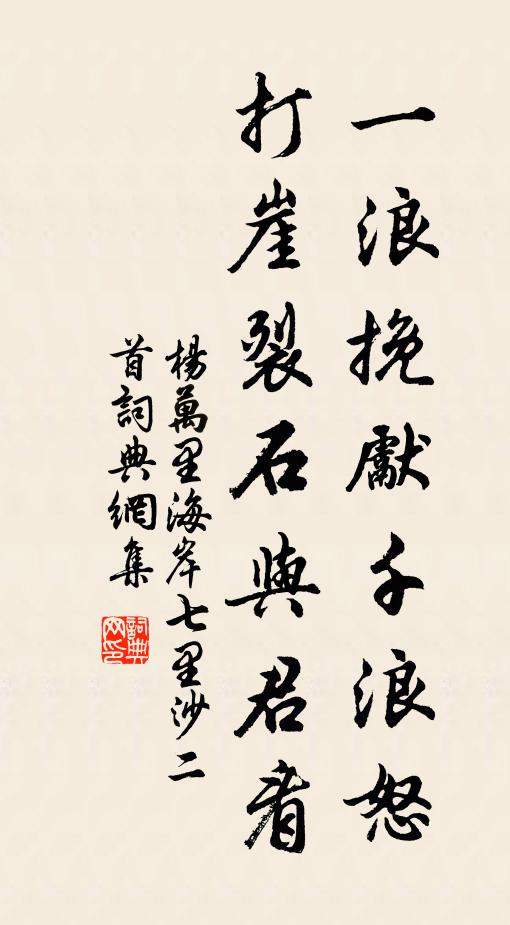 一浪挽獻千浪怒
打崖裂石與君看
楊萬里海岸七里沙二
首詞典網集
詞典网印